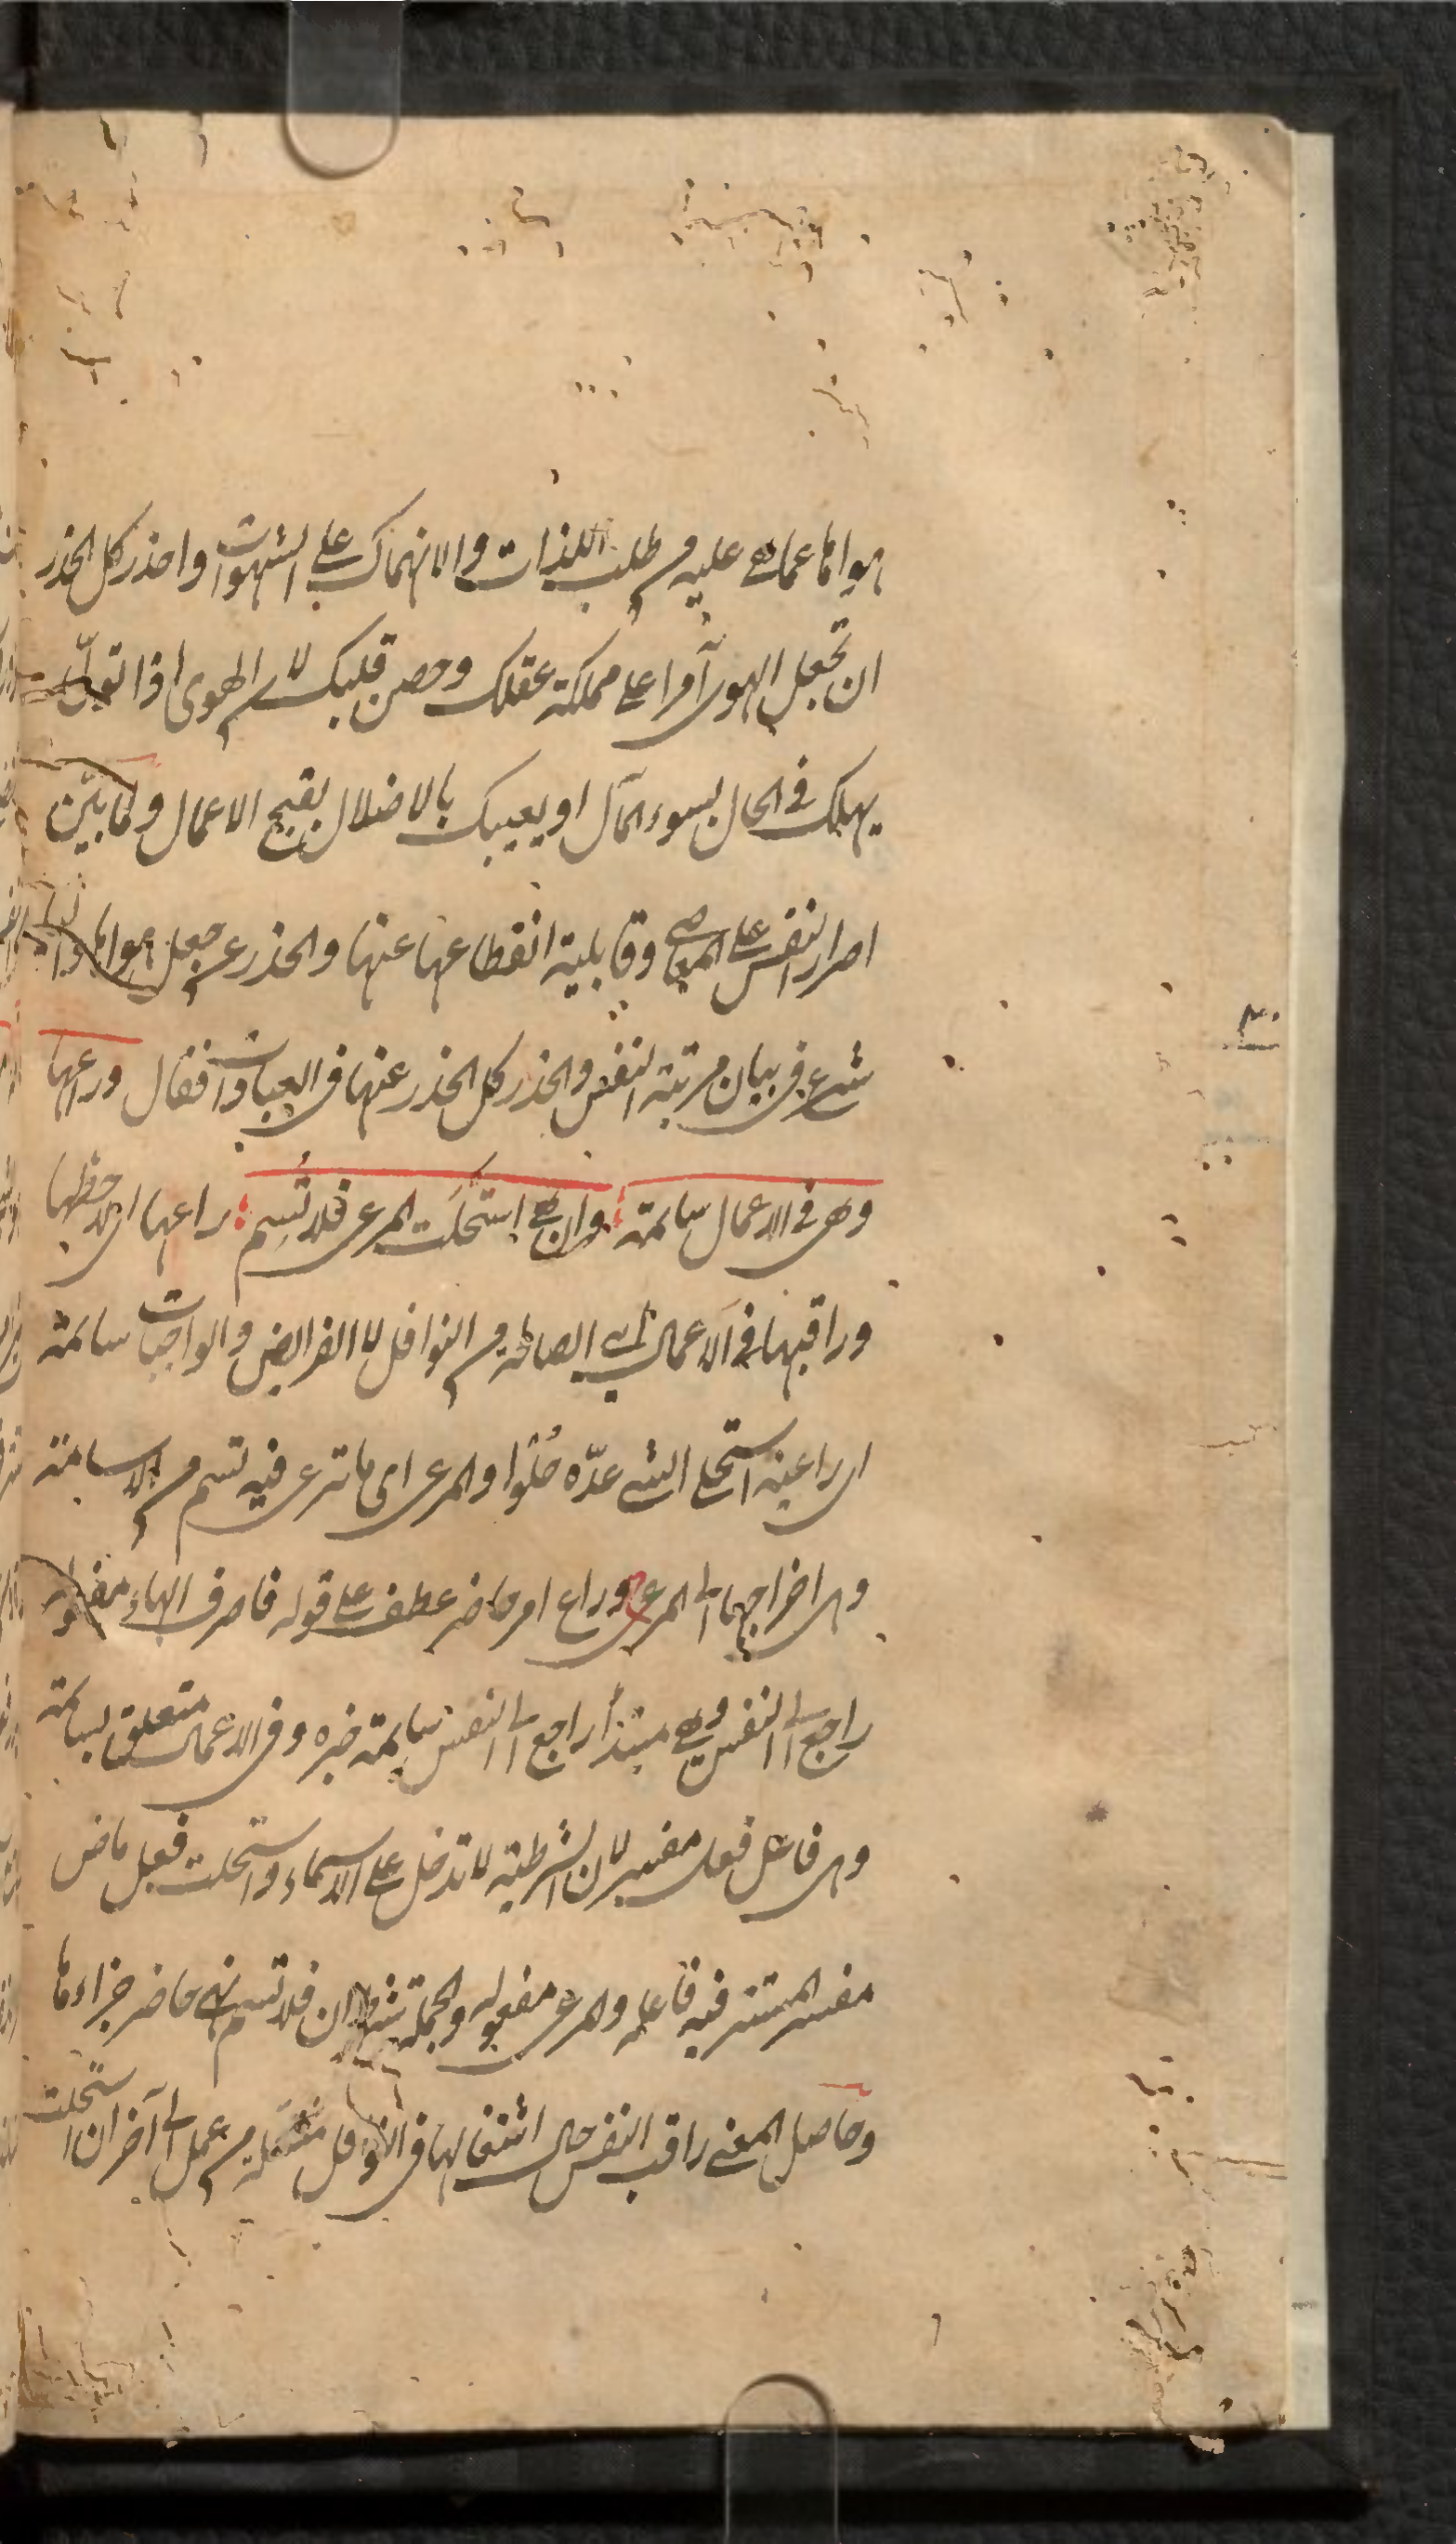 هواها عما هي عليه من طلب اللذات والانهماك على الشهوات واحذر كل الحذر
ان تجعل الهوى آمرا على مملكة عقلك وحصن قلبك لان الهوى اذا تولى
يهلك في الحال بسوء المآل او يعيبك بالاضلال بقبح الاعمال ولما بيّن
اصرار النفس على المعاصي وقابلية انقطاعها عنها والحذر عن جعل هواها واليا
شرع في بيان مرتبة النفس والحذر كل الحذر عنها في العبادات فقال وراعها
وهي في الاعمال سائمة وان هي استحلت المرعى فلا تُسِم راعها اي لاحظها
وراقبها في الاعمال اي الصالحة من النوافل لا الفرائض والواجبات سائمة
اي راعية استحلى الشيء عدّه حُلْوًا والمرعى اي ما ترعى فيه تسم من الاسامة
وهي اخراجها الى المرعى وراع امر حاضر عطف على قوله فاصرف الهاء مفعوله
راجع الى النفس وهي مبتدأ راجع الى النفس سائمة خبره وفي الاعمال متعلق بسائمة
وهي فاعل فعل مفسر لان الشرطية لا تدخل على الاسماء واستحلت فعل ماض
مفسر المستتر فيه فاعله والمرعى مفعوله والجملة شرط ان فلا تسم نهي حاضر جزاءها
وحاصل المعنى راقب النفس حال اشتغالها في النوافل من عمل الى آخر ان استحلت
٣٠